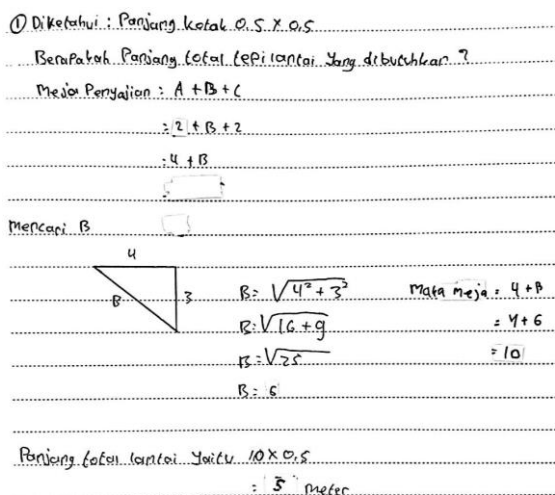 ① Diketahui : Panjang kotak 0,5 x 0,5
Berapakah Panjang total tepi lantai yang dibutuhkan ?
Meja Penyajian : A + B + C
: 2 + B + 2
: 4 + B
:
Mencari B
4
B
3
B = √4² + 3²
B : √16 + 9
B = √25
B = 6
Maka Meja = 4 + B
= 4 + 6
= 10
Panjang total lantai yaitu 10 x 0,5
: 5 meter